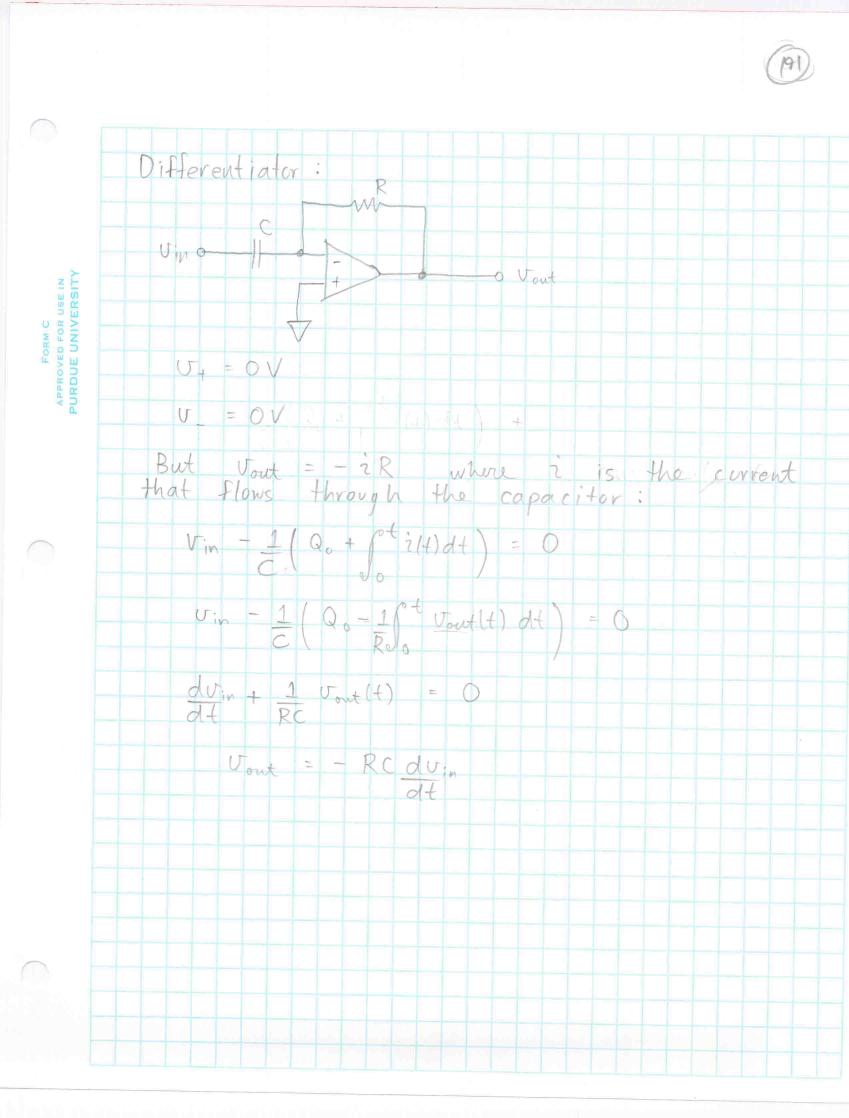 191
FORM C
APPROVED FOR USE IN
PURDUE UNIVERSITY
Differentiator :
R
C
Vin
-
+
Vout
V+ = 0V
V_ = 0V
But Vout = - iR where i is the current
that flows through the capacitor :
Vin - 1/C ( Q₀ + ∫₀ᵗ i(t) dt ) = 0
Vin - 1/C ( Q₀ - 1/R ∫₀ᵗ Vout(t) dt ) = 0
dVin/dt + 1/RC Vout(t) = 0
Vout = - RC dVin/dt